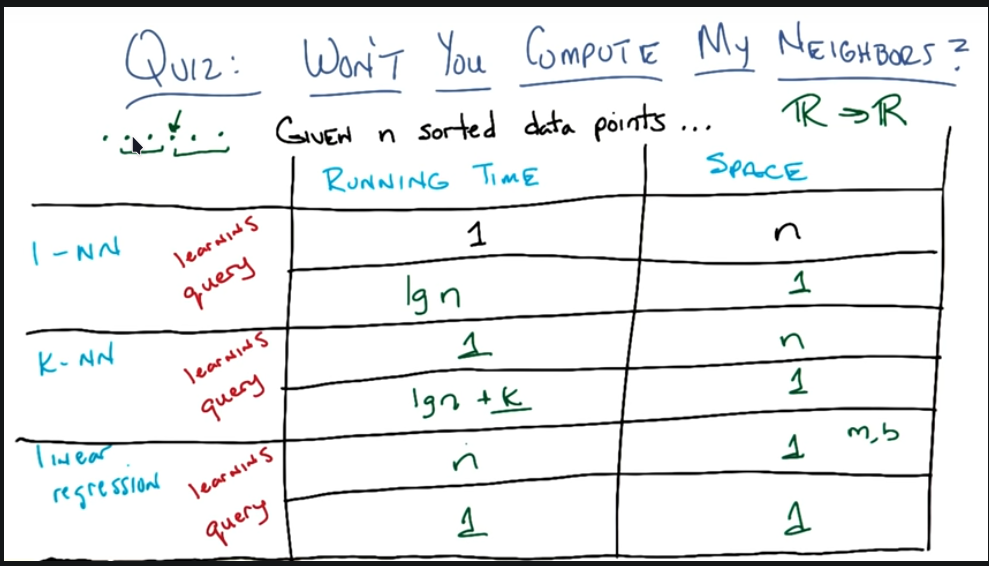 QUIZ: WON'T YOU COMPUTE MY NEIGHBORS?
GIVEN n sorted data points... ℝ → ℝ
RUNNING TIME SPACE
1-NN learning 1 n
query lg n 1
K-NN learning 1 n
query lgn + k 1
linear regression learning n 1 m,b
query 1 1